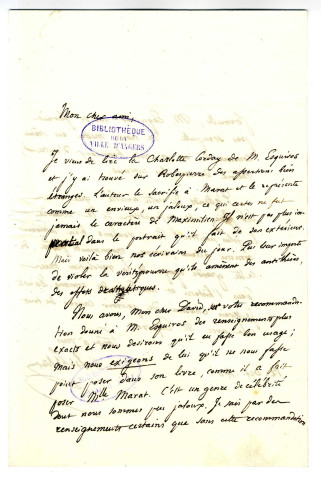 Mon cher ami,
BIBLIOTHÈQUE
DE LA
VILLE D'ANGERS
Je viens de lire la Charlotte Corday de M. Esquiros
et j'y ai trouvé sur Robespierre des assertions bien
étranges. L'auteur le sacrifie à Marat et le représente
comme un envieux, un jaloux, ce qui certes ne fut
jamais le caractère de Maximilien. Il n'est pas plus im
partial dans le portrait qu'il fait de son extérieur.
Mais voilà bien nos écrivains du jour. Peu leur importe
de violer la vérité pourvu qu'ils amènent des antithèses,
des effets dramatiques.
Nous avons, mon cher David, sur votre recomman
tion donné à M. Esquiros des renseignements plus
exacts et nous désirons qu'il en fasse bon usage;
mais nous exigeons de lui qu'il ne nous fasse
point poser dans son livre, comme il a fait
poser Mlle Marat. C'est un genre de célébrité
dont nous sommes peu jaloux. Je sais par des
renseignements certains que sans cette recommandation